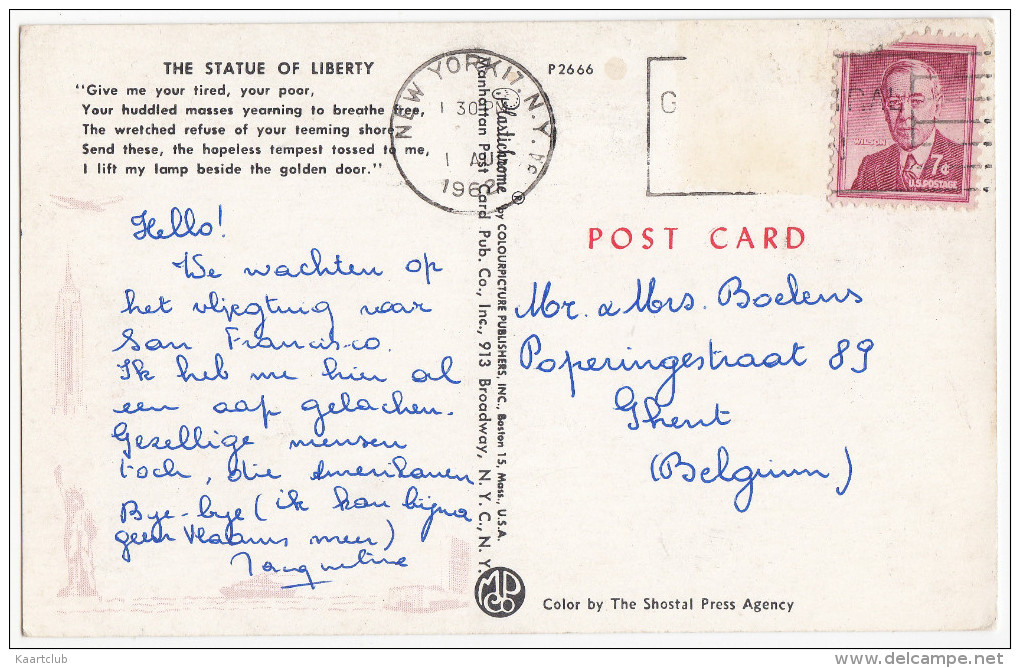 THE STATUE OF LIBERTY
"Give me your tired, your poor,
Your huddled masses yearning to breathe free,
The wretched refuse of your teeming shore
Send these, the hopeless tempest tossed to me,
I lift my lamp beside the golden door."
Hello!
We wachten op
het vliegtuig naar
San Francisco.
Ik heb me hier al
een aap gelachen.
Gezellige mensen
toch, die Amerikanen
Bye-bye (ik kan bijna
geen Vlaams meer)
Jacqueline
NEW YORK 17, N.Y.
1 30 P
1 AUG
1962
P2666
Plastichrome ® by COLOURPICTURE PUBLISHERS, INC., Boston 15, Mass., U.S.A.
Manhattan Post Card Pub. Co., Inc., 913 Broadway, N.Y.C., N.Y.
G
WILSON
7¢
U.S. POSTAGE
POST CARD
Mr. & Mrs. Boelens
Poperingestraat 89
Ghent
(Belgium)
MPC
Co
Color by The Shostal Press Agency
Kaartclub
delcampe.net